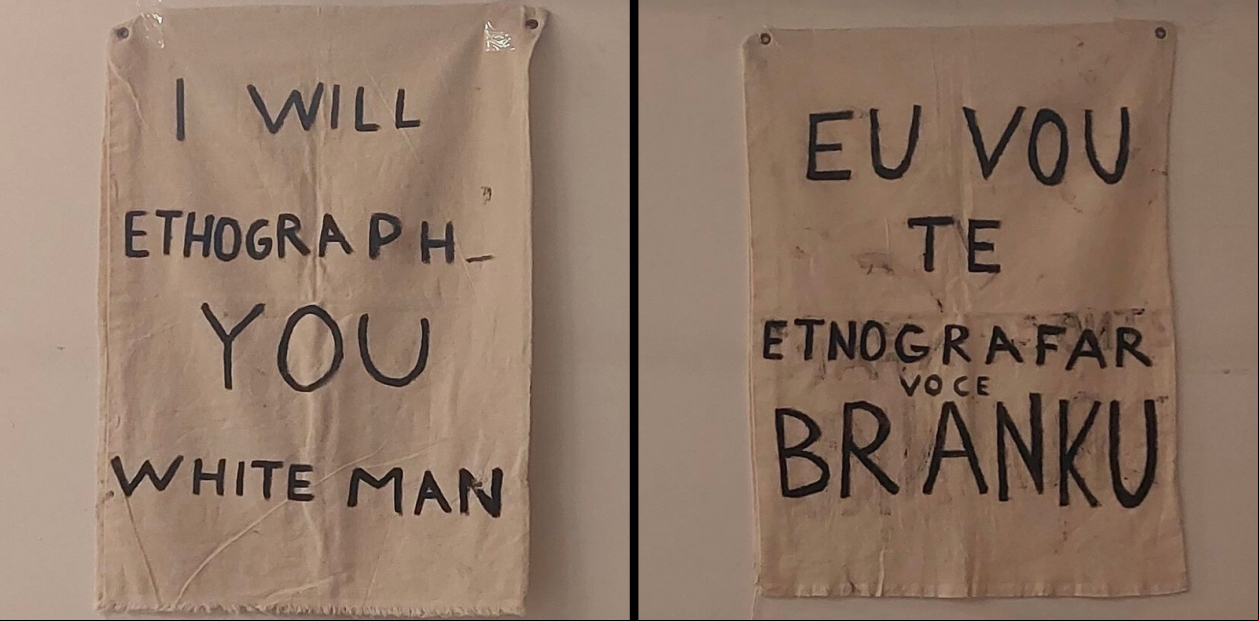 I WILL
ETHOGRAPH_
YOU
WHITE MAN
EU VOU
TE
ETNOGRAFAR
VOCE
BRANKU